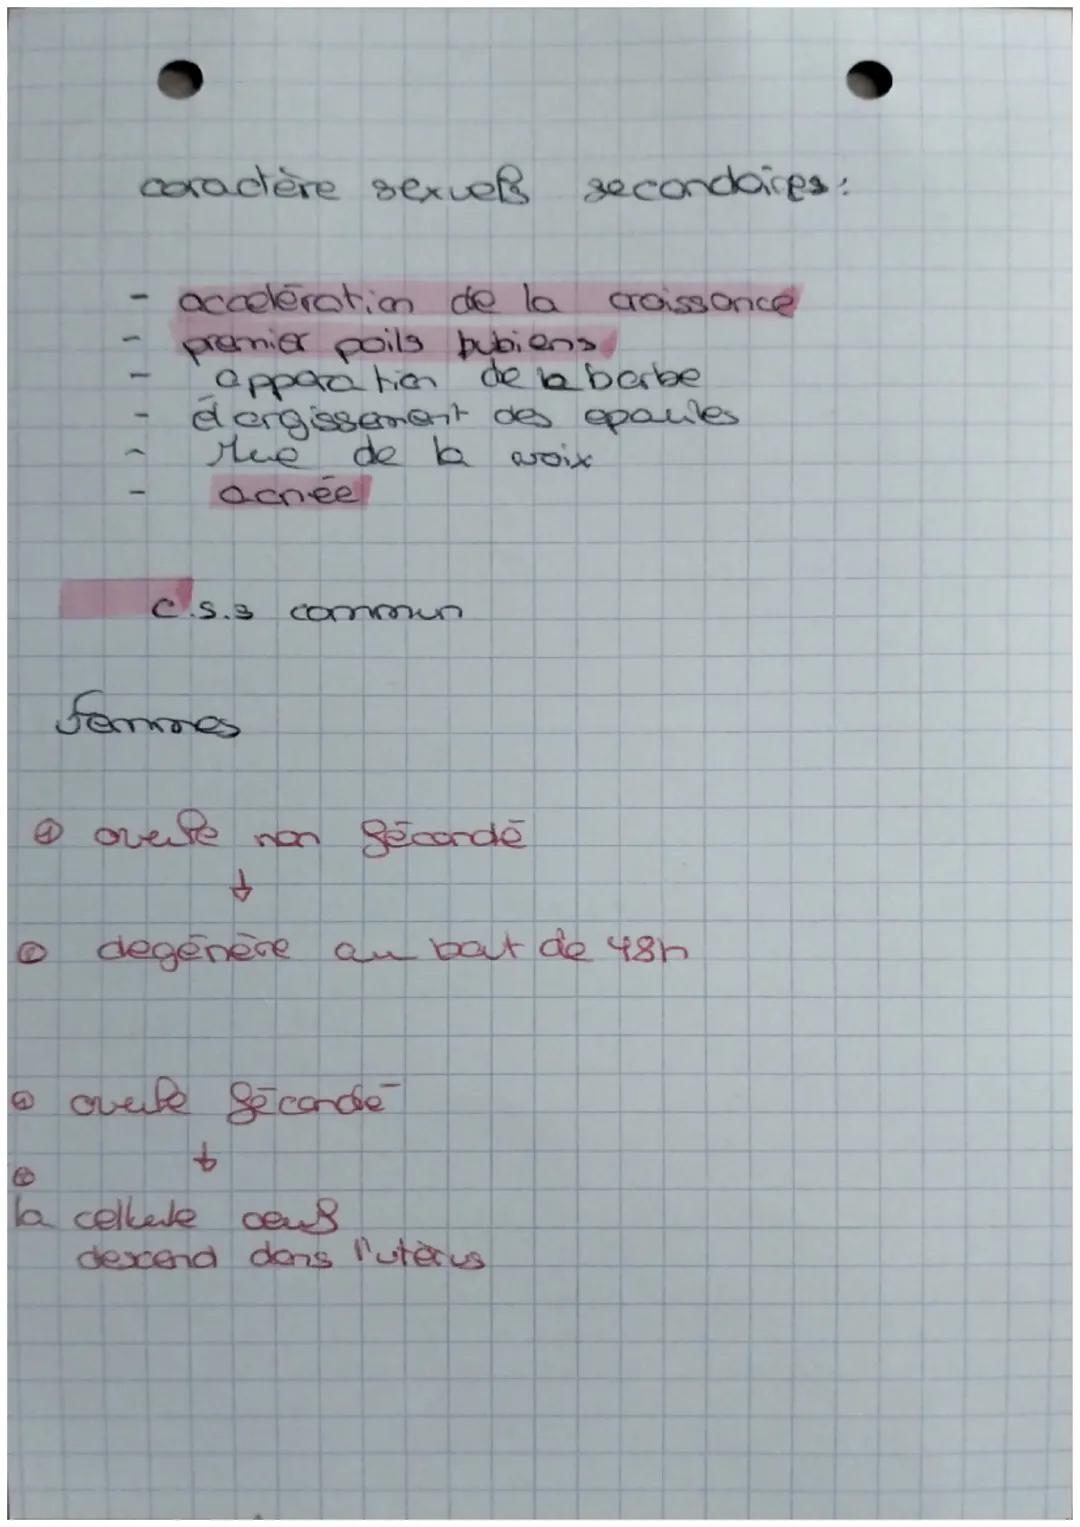 caractère sexuels secondaires:
- accelération de la croissance
- premier poils pubiens
- apparation de la barbe
- élargissement des epaules
- Mue de la voix
- acnée
c.s.s commun
femmes
① ovule non fécondé
↓
② degénère au bout de 48h
① ovule fécondé
↓
②
la cellule oeuf
descend dans l'utèrus